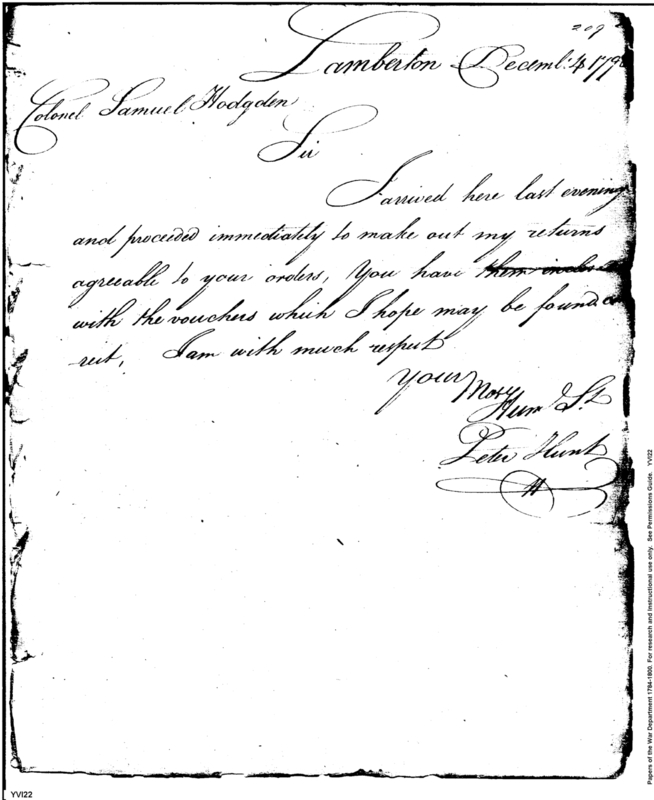 209
Lamberton Decembr. 4 179
Colonel Samuel Hodgden
Sir
I arrived here last evening
and proceeded immediately to make out my returns
agreeable to your orders, You have them inclos
with the vouchers which I hope may be found co
rect, I am with much respect
Your Most
Hume St
Peter Hunt
H
YVI22
Papers of the War Department 1784-1800. For research and instructional use only. See Permissions Guide. YVI22